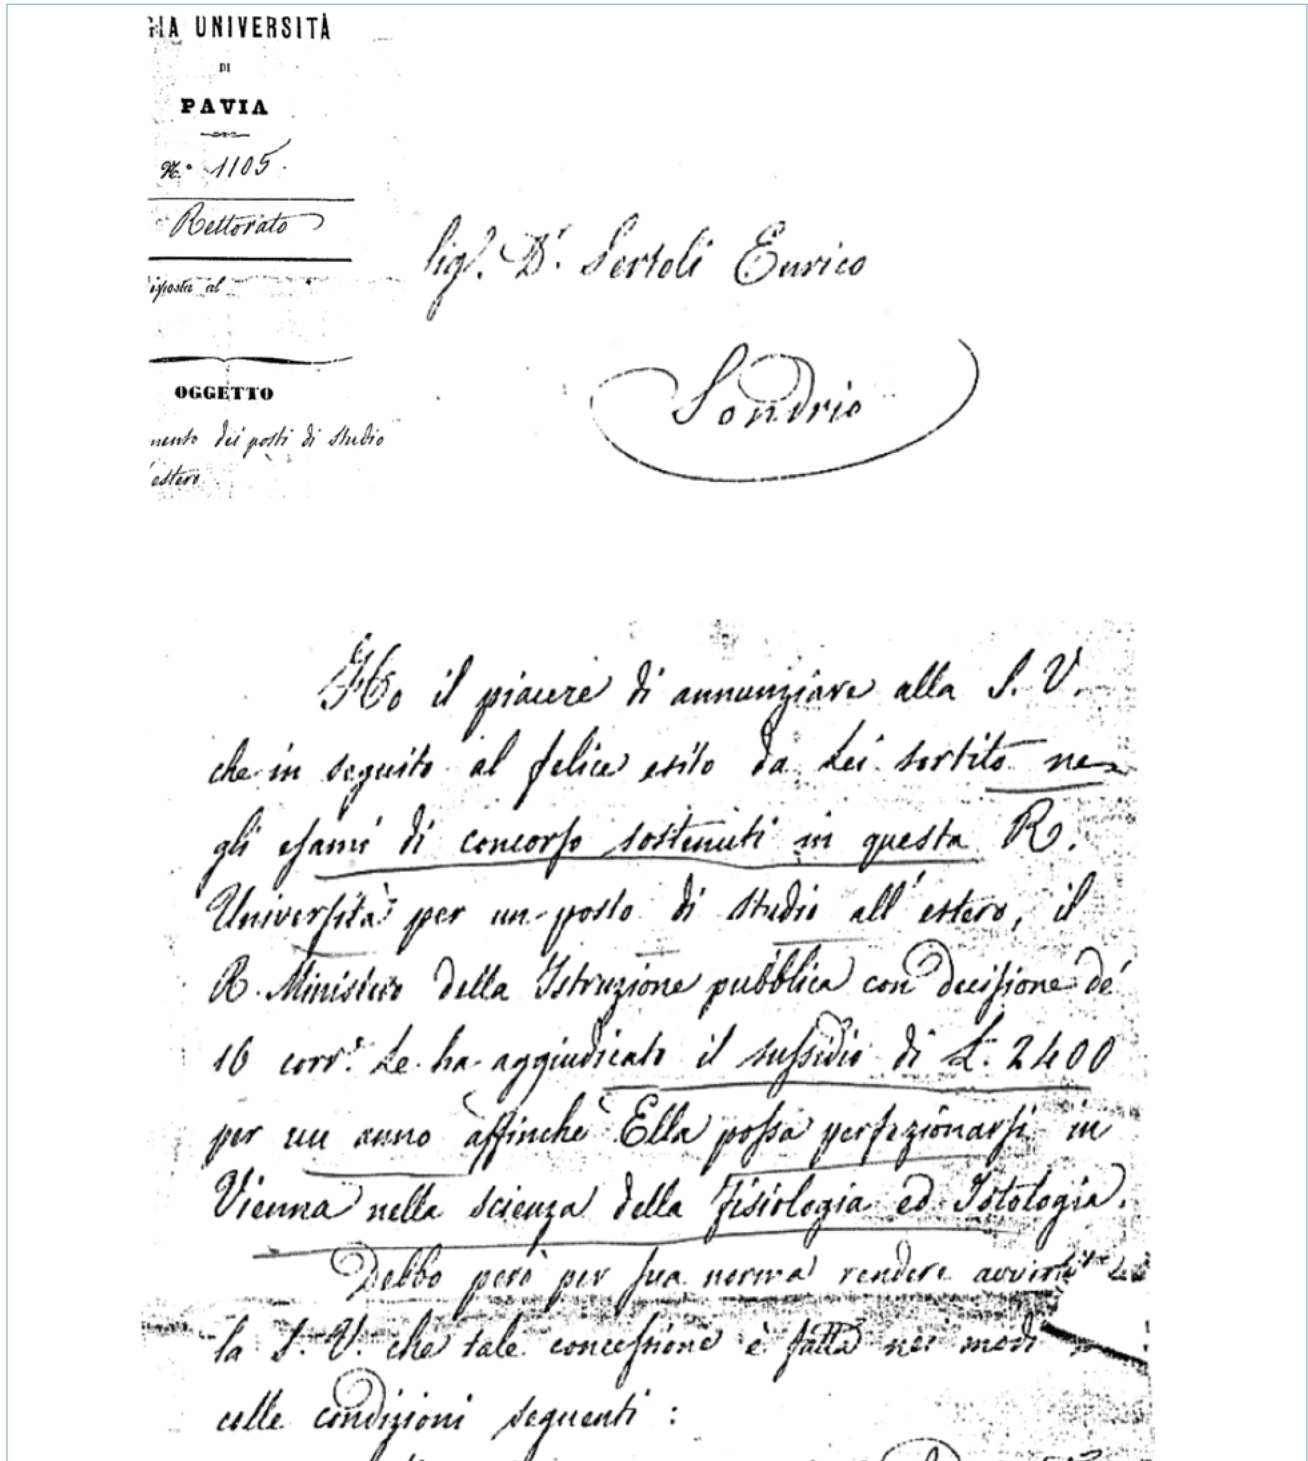 GIA UNIVERSITÀ
DI
PAVIA
N.° 1105.
Rettorato
isposta al
OGGETTO
mento dei posti di studio
estero
Sigr. Dr. Sertoli Enrico
Sondrio
Ho il piacere di annunziare alla S. V.
che in seguito al felice esito da Lei sortito ne=
gli esami di concorso sostenuti in questa R.
Università per un posto di studio all'estero, il
R. Ministero della Istruzione pubblica con decisione de'
16 corr.e Le ha aggiudicato il sussidio di L. 2400
per un anno affinchè Ella possa perfezionarsi in
Vienna nella scienza della Fisiologia ed Istologia.
Debbo però per sua norma rendere
la S. V. che tale concessione è fatta nei modi
colle condizioni seguenti :